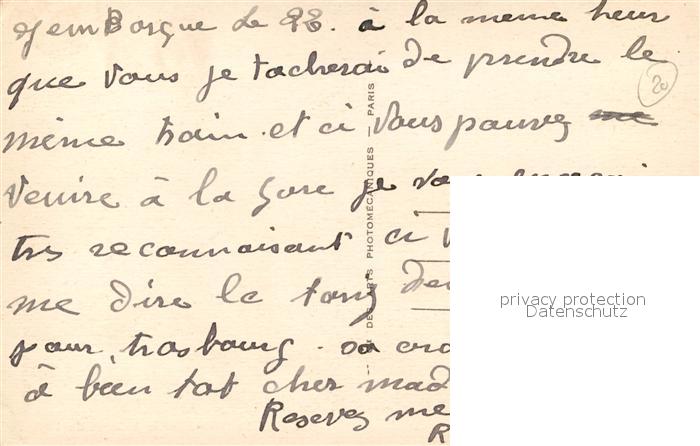 jemBarque le 22. à la meme heur
que vous je tacherai de prendre le
20
même train et ci Vous pouvez me
Venire à la Gare je
tres reconnaisant ci
me dire le
pour trasbourg.
à bien tot cher mad
Reservez me
R
DE PARTS PHOTOMÉCANIQUES — PARIS
privacy protection
Datenschutz